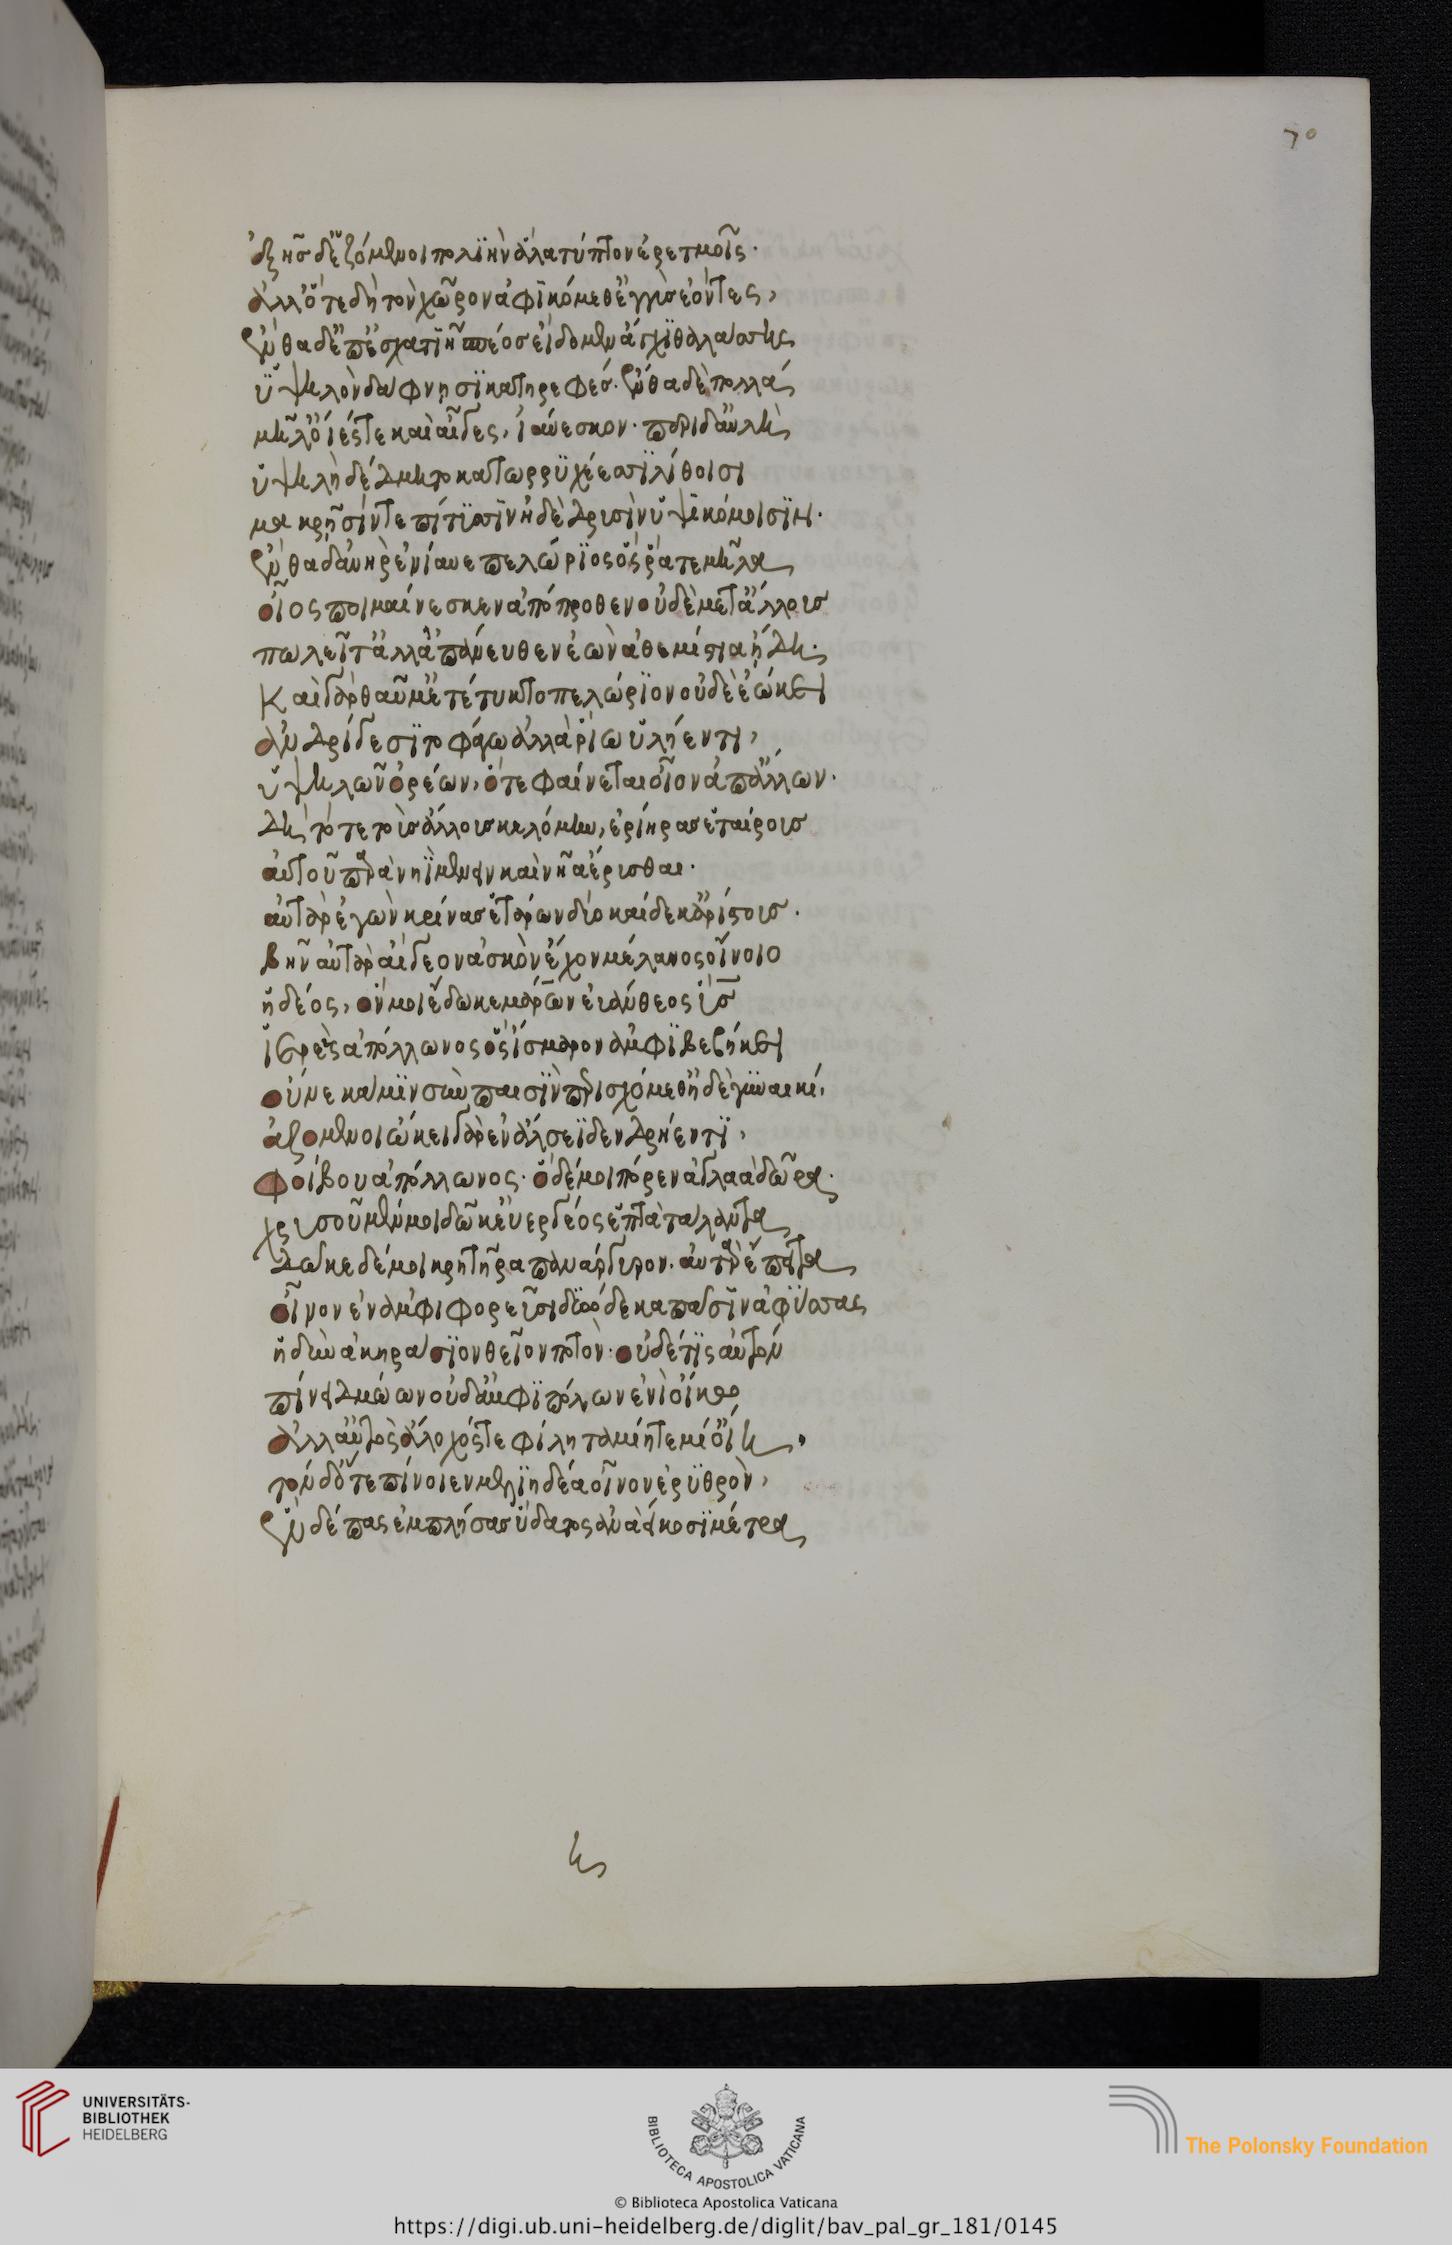 70
ἑξῆς δ' ἑζόμενοι πολιὴν ἅλα τύπτον ἐρετμοῖς.
ἀλλ' ὅτε δὴ τὸν χῶρον ἀφικόμεθ' ἐγγὺς ἐόντες,
ἔνθα δ' ἐπ' ἐσχατιῇ σπέος εἴδομεν ἄγχι θαλάσσης
ὑψηλὸν δάφνησι κατηρεφές. ἔνθα δὲ πολλὰ
μῆλ' ὄϊές τε καὶ αἶγες, ἰαύεσκον. περὶ δ' αὐλὴ
ὑψηλὴ δέδμητο κατωρυχέεσσι λίθοισι
μακρῇσίν τε πίτυσσιν ἠδὲ δρυσὶν ὑψικόμοισιν.
ἔνθα δ' ἀνὴρ ἐνίαυε πελώριος ὅς ῥά τε μῆλα
οἶος ποιμαίνεσκεν ἀπόπροθεν οὐδὲ μετ' ἄλλους
πωλεῖτ' ἀλλ' ἀπάνευθεν ἐὼν ἀθεμίστια ᾔδη.
καὶ γὰρ θαῦμ' ἐτέτυκτο πελώριον οὐδὲ ἐῴκει
ἀνδρί γε σιτοφάγῳ ἀλλὰ ῥίῳ ὑλήεντι,
ὑψηλῶν ὀρέων, ὅτε φαίνεται οἶον ἀπ' ἄλλων.
δὴ τότε τοὺς ἄλλους κελόμην, ἐρίηρας ἑταίρους
αὐτοῦ παρὰ νηῒ μένειν καὶ νῆα ἔρυσθαι.
αὐτὰρ ἐγὼν κρίνας ἑτάρων δύο καίδεκ' ἀρίστους.
βῆν αὐτὰρ αἴγεον ἀσκὸν ἔχον μέλανος οἴνοιο
ἡδέος, ὅν μοι ἔδωκε μάρων εὐάνθεος υἱὸς
ἱερεὺς ἀπόλλωνος ὃς ἴσμαρον ἀμφιβεβήκει
οὕνεκά μιν σὺν παισὶν περισχόμεθ' ἠδὲ γυναικί,
ἁζόμενοι ᾤκει γὰρ ἐν ἄλσεϊ δενδρήεντι,
φοίβου ἀπόλλωνος. ὁ δέ μοι πόρεν ἀγλαὰ δῶρα.
χρυσοῦ μέν μοι δῶκ' εὐεργέος ἑπτὰ τάλαντα
δῶκε δέ μοι κρητῆρα πανάργυρον. αὐτὰρ ἔπειτα
οἶνον ἐν ἀμφιφορεῦσι δυώδεκα πᾶσιν ἀφύσσας
ἡδὺν ἀκηράσιον θεῖον ποτὸν. οὐδέ τις αὐτὸν
πίνει δμώων οὐδ' ἀμφιπόλων ἐνὶ οἴκῳ
ἀλλ' αὐτὸς ἄλοχός τε φίλη ταμίη τε μί' οἴη.
τὸν δ' ὅτε πίνοιεν μελιηδέα οἶνον ἐρυθρὸν,
ἓν δέπας ἐμπλήσας ὕδατος ἀνὰ εἴκοσι μέτρα
UNIVERSITÄTS-
BIBLIOTHEK
HEIDELBERG
BIBLIOTECA APOSTOLICA VATICANA
The Polonsky Foundation
© Biblioteca Apostolica Vaticana
https://digi.ub.uni-heidelberg.de/diglit/bav_pal_gr_181/0145